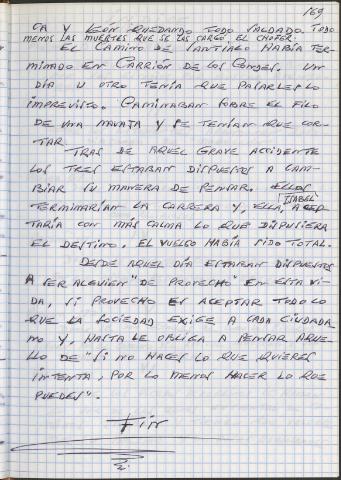 169
CA Y LEÓN QUEDANDO TODO SALDADO. TODO
MENOS LAS MUERTES QUE SE LAS CARGÓ, EL CHOFER.
EL CAMINO DE SANTIAGO HABÍA TER-
MINADO EN CARRIÓN DE LOS CONDES. UN
DÍA U OTRO TENÍA QUE PASARLES LO
IMPREVISTO. CAMINABAN SOBRE EL FILO
DE UNA NAVAJA Y SE TENÍAN QUE COR-
TAR
TRAS DE AQUEL GRAVE ACCIDENTE
LOS TRES ESTABAN DISPUESTOS A CAM-
BIAR SU MANERA DE PENSAR. ELLOS
ISABEL
TERMINARÍAN LA CARRERA Y, ELLA, ACEP
TARÍA CON MÁS CALMA LO QUE DISPUSIERA
EL DESTINO. EL VUELCO HABÍA SIDO TOTAL.
DESDE AQUEL DÍA ESTABAN DISPUESTOS
A SER ALGUIEN "DE PROVECHO" EN ESTA VI-
DA, SI PROVECHO ES ACEPTAR TODO LO
QUE LA SOCIEDAD EXIGE A CADA CIUDADA
NO Y, HASTA LE OBLIGA A PENSAR AQUE-
LLO DE "SI NO HACES LO QUE QUIERES
INTENTA, POR LO MENOS HACER LO QUE
PUEDES".
FIN